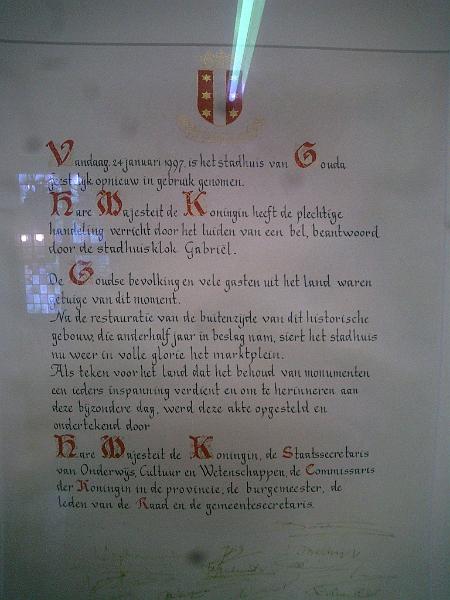 Vandaag, 24 januari 1997, is het stadhuis van Gouda
feestelijk opnieuw in gebruik genomen.
Hare Majesteit de Koningin heeft de plechtige
handeling verricht door het luiden van een bel, beantwoord
door de stadhuisklok Gabriël.
De Goudse bevolking en vele gasten uit het land waren
getuige van dit moment.
Na de restauratie van de buitenzijde van dit historische
gebouw, die anderhalf jaar in beslag nam, siert het stadhuis
nu weer in volle glorie het marktplein.
Als teken voor het land dat het behoud van monumenten
een ieders inspanning verdient en om te herinneren aan
deze bijzondere dag, werd deze akte opgesteld en
ondertekend door
Hare Majesteit de Koningin, de Staatssecretaris
van Onderwijs, Cultuur en Wetenschappen, de Commissaris
der Koningin in de provincie, de burgemeester, de
leden van de Raad en de gemeentesecretaris.